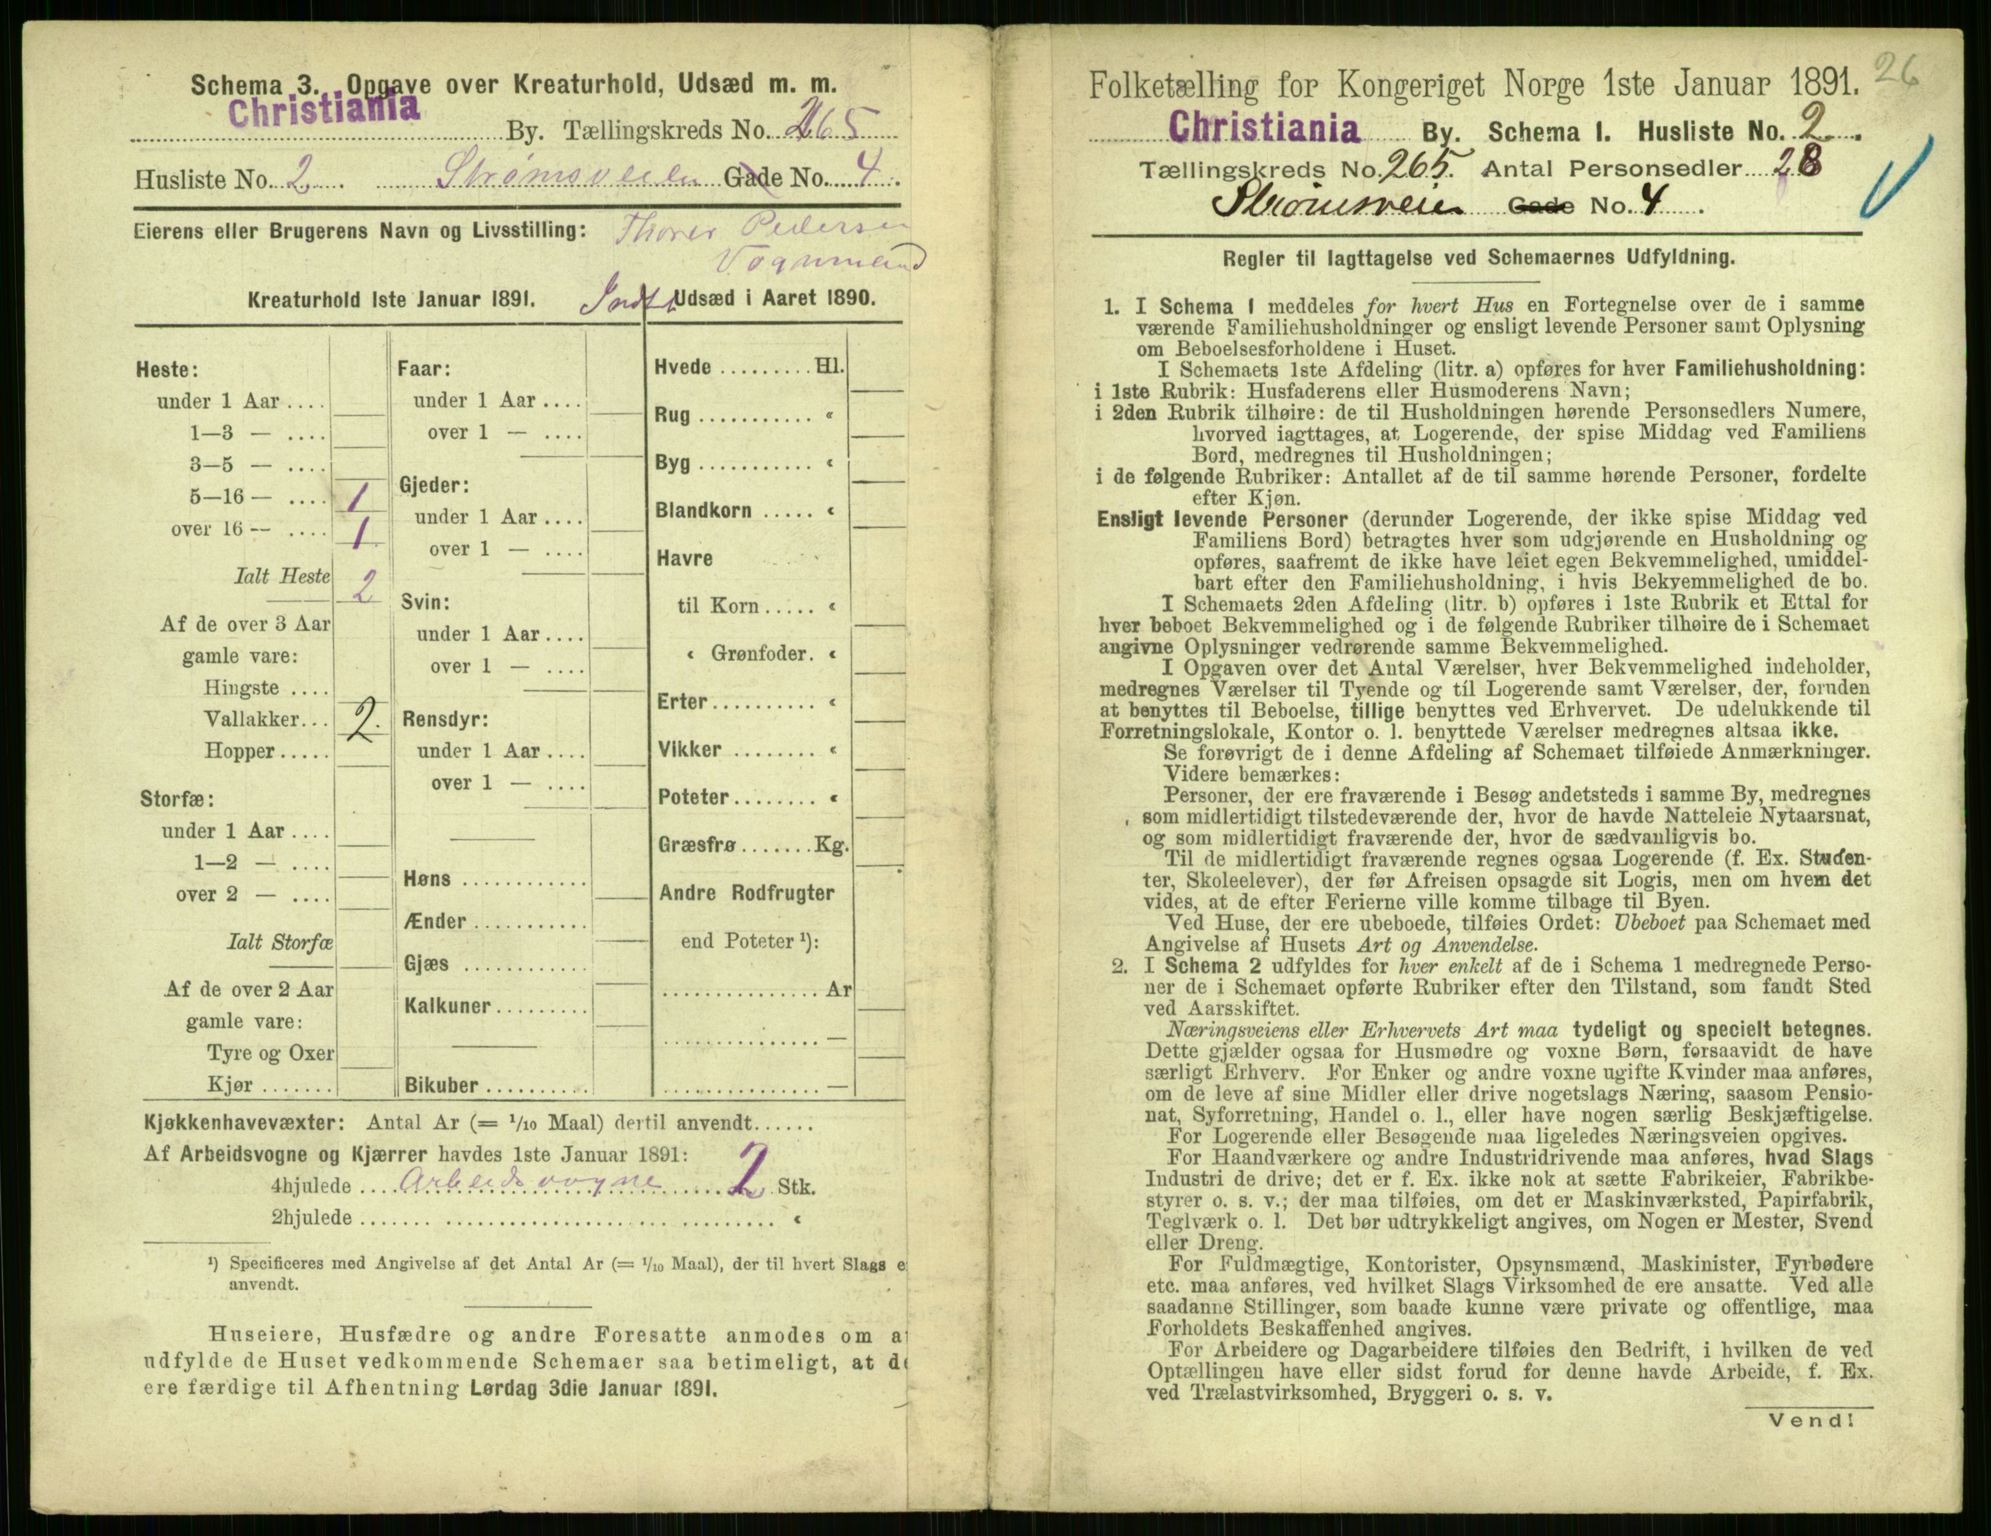 Schema 3. Opgave over Kreaturhold, Udsæd m. m.
Christiania By. Tællingskreds No. 265
Husliste No. 2. Strømsveien Gade No. 4.
Eierens eller Brugerens Navn og Livsstilling: Thorer Pedersen
Vognmand
Kreaturhold 1ste Januar 1891. Udsæd i Aaret 1890.
Heste:
under 1 Aar ....
1—3 — ....
3—5 — ....
5—16 — .... 1
over 16 — .... 1.
Ialt Heste 2
Af de over 3 Aar
gamle vare:
Hingste ....
Vallakker... 2.
Hopper.....
Storfæ:
under 1 Aar ....
1—2 — ....
over 2 — ....
Ialt Storfæ
Af de over 2 Aar
gamle vare:
Tyre og Oxer
Kjør .......
Faar:
under 1 Aar ....
over 1 — ....
Gjeder:
under 1 Aar ....
over 1 — ....
Svin:
under 1 Aar ....
over 1 — ....
Rensdyr:
under 1 Aar ....
over 1 — ....
Høns ............
Ænder ...........
Gjæs ............
Kalkuner.........
Bikuber..........
Hvede ......... Hl.
Rug ........... «
Byg ........... «
Blandkorn ..... «
Havre
til Korn ..... «
« Grønfoder. «
Erter.......... «
Vikker ........ «
Poteter........ «
Græsfrø....... Kg.
Andre Rodfrugter
end Poteter ¹):
............... Ar
............... —
............... —
Kjøkkenhavevæxter: Antal Ar (= 1/10 Maal) dertil anvendt......
Af Arbeidsvogne og Kjærrer havdes 1ste Januar 1891:
4hjulede .... Arbeidsvogne ....... 2 Stk.
2hjulede ....... ........................ «
¹) Specificeres med Angivelse af det Antal Ar (= 1/10 Maal), der til hvert Slags e
anvendt.
Huseiere, Husfædre og andre Foresatte anmodes om a
udfylde de Huset vedkommende Schemaer saa betimeligt, at de
ere færdige til Afhentning Lørdag 3die Januar 1891.
26
Folketælling for Kongeriget Norge 1ste Januar 1891.
Christiania By. Schema 1. Husliste No. 2.
Tællingskreds No. 265. Antal Personsedler 28
Strømsveien Gade No. 4.
Regler til Iagttagelse ved Schemaernes Udfyldning.
1. I Schema 1 meddeles for hvert Hus en Fortegnelse over de i samme
værende Familiehusholdninger og ensligt levende Personer samt Oplysning
om Beboelsesforholdene i Huset.
I Schemaets 1ste Afdeling (litr. a) opføres for hver Familiehusholdning:
i 1ste Rubrik: Husfaderens eller Husmoderens Navn;
i 2den Rubrik tilhøire: de til Husholdningen hørende Personsedlers Numere,
hvorved iagttages, at Logerende, der spise Middag ved Familiens
Bord, medregnes til Husholdningen;
i de følgende Rubriker: Antallet af de til samme hørende Personer, fordelte
efter Kjøn.
Ensligt levende Personer (derunder Logerende, der ikke spise Middag ved
Familiens Bord) betragtes hver som udgjørende en Husholdning og
opføres, saafremt de ikke have leiet egen Bekvemmelighed, umiddel-
bart efter den Familiehusholdning, i hvis Bekvemmelighed de bo.
I Schemaets 2den Afdeling (litr. b) opføres i 1ste Rubrik et Ettal for
hver beboet Bekvemmelighed og i de følgende Rubriker tilhøire de i Schemaet
angivne Oplysninger vedrørende samme Bekvemmelighed.
I Opgaven over det Antal Værelser, hver Bekvemmelighed indeholder,
medregnes Værelser til Tyende og til Logerende samt Værelser, der, foruden
at benyttes til Beboelse, tillige benyttes ved Erhvervet. De udelukkende til
Forretningslokale, Kontor o. l. benyttede Værelser medregnes altsaa ikke.
Se forøvrigt de i denne Afdeling af Schemaet tilføiede Anmærkninger.
Videre bemærkes:
Personer, der ere fraværende i Besøg andetsteds i samme By, medregnes
som midlertidigt tilstedeværende der, hvor de havde Natteleie Nytaarsnat,
og som midlertidigt fraværende der, hvor de sædvanligvis bo.
Til de midlertidigt fraværende regnes ogsaa Logerende (f. Ex. Studen-
ter, Skoleelever), der før Afreisen opsagde sit Logis, men om hvem det
vides, at de efter Ferierne ville komme tilbage til Byen.
Ved Huse, der ere ubeboede, tilføies Ordet: Ubeboet paa Schemaet med
Angivelse af Husets Art og Anvendelse.
2. I Schema 2 udfyldes for hver enkelt af de i Schema 1 medregnede Perso-
ner de i Schemaet opførte Rubriker efter den Tilstand, som fandt Sted
ved Aarsskiftet.
Næringsveiens eller Erhvervets Art maa tydeligt og specielt betegnes.
Dette gjælder ogsaa for Husmødre og voxne Børn, forsaavidt de have
særligt Erhverv. For Enker og andre voxne ugifte Kvinder maa anføres,
om de leve af sine Midler eller drive nogetslags Næring, saasom Pensio-
nat, Syforretning, Handel o. l., eller have nogen særlig Beskjæftigelse.
For Logerende eller Besøgende maa ligeledes Næringsveien opgives.
For Haandværkere og andre Industridrivende maa anføres, hvad Slags
Industri de drive; det er f. Ex. ikke nok at sætte Fabrikeier, Fabrikbe-
styrer o. s. v.; der maa tilføies, om det er Maskinværksted, Papirfabrik,
Teglværk o. l. Det bør udtrykkeligt angives, om Nogen er Mester, Svend
eller Dreng.
For Fuldmægtige, Kontorister, Opsynsmænd, Maskinister, Fyrbødere
etc. maa anføres, ved hvilket Slags Virksomhed de ere ansatte. Ved alle
saadanne Stillinger, som baade kunne være private og offentlige, maa
Forholdets Beskaffenhed angives.
For Arbeidere og Dagarbeidere tilføies den Bedrift, i hvilken de ved
Optællingen have eller sidst forud for denne havde Arbeide, f. Ex.
ved Trælastvirksomhed, Bryggeri o. s. v.
Vend!